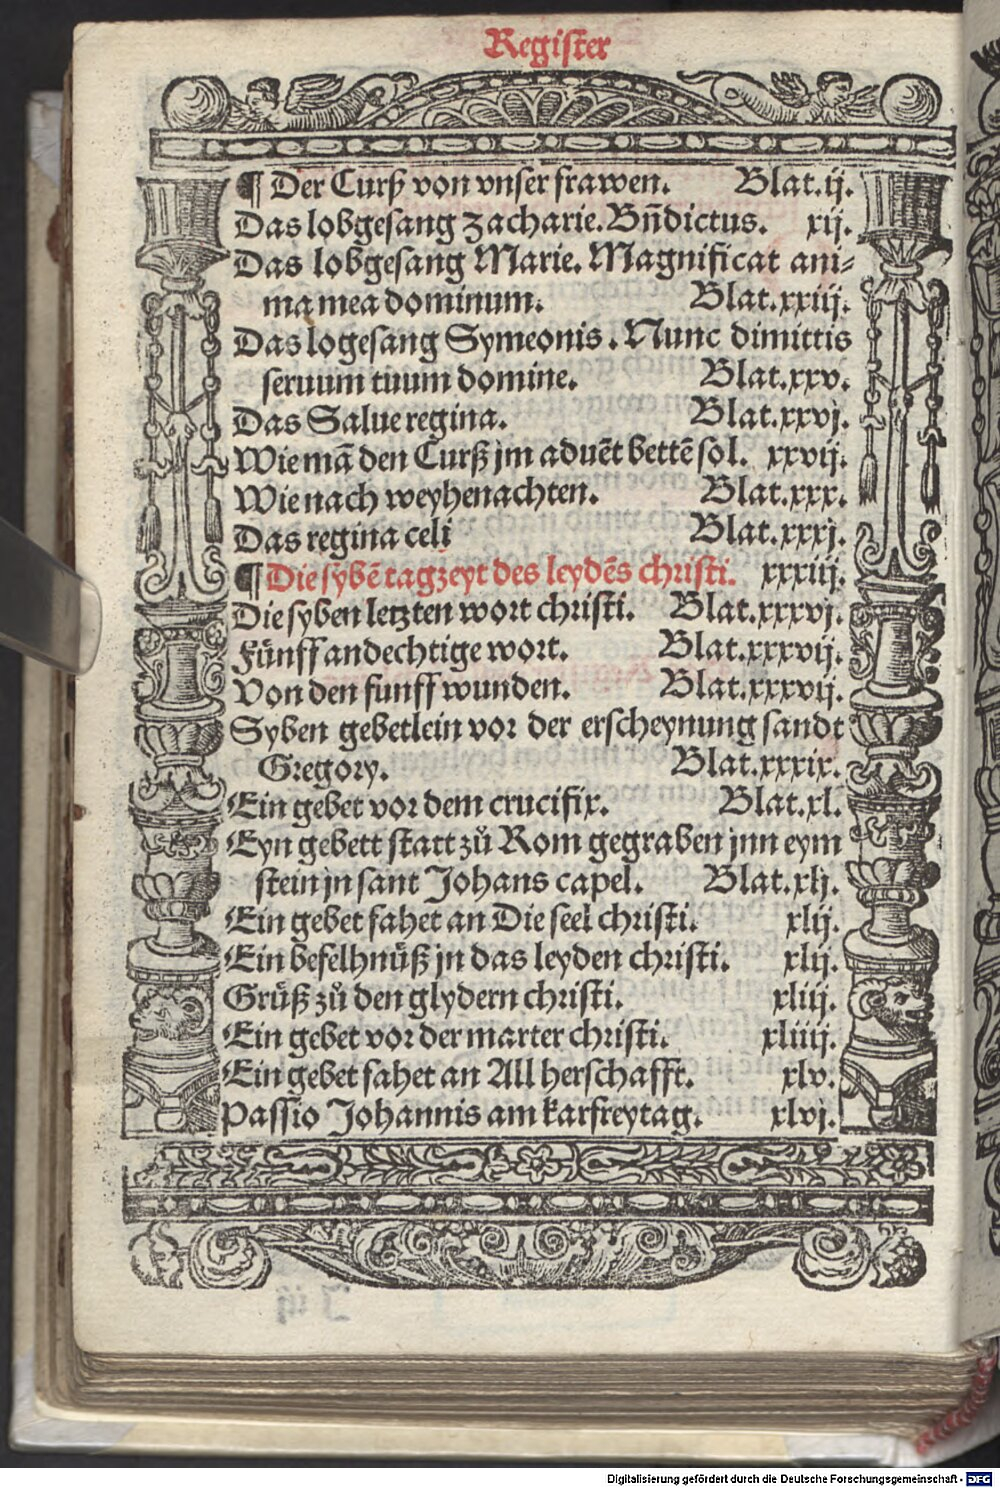 Register
¶ Der Curß von vnser frawen. Blat.ij.
Das lobgesang zacharie. Bñdictus. xij.
Das lobgesang Marie. Magnificat ani⸗
ma mea dominum. Blat.xxiij.
Das logesang Symeonis. Nunc dimittis
seruum tuum domine. Blat.xxv.
Das Salue regina. Blat.xxvj.
Wie mā den Curß jm aduēt bettē sol. xxvij.
Wie nach weyhenachten. Blat.xxx.
Das regina celi Blat.xxxj.
¶ Die sybē tagzeyt des leydēs christi. xxxiij.
Die syben letzten wort christi. Blat.xxxvj.
Fünff andechtige wort. Blat.xxxvij.
Von den funff wunden. Blat.xxxvij.
Syben gebetlein vor der erscheynung sandt
Gregory. Blat.xxxix.
Ein gebet vor dem crucifix. Blat.xl.
Eyn gebett statt zů Rom gegraben jnn eym
stein jn sant Johans capel. Blat.xlj.
Ein gebet fahet an Die seel christi. xlij.
Ein befelhnüß jn das leyden christi. xlij.
Grüß zů den glydern christi. xliij.
Ein gebet vor der marter christi. xliiij.
Ein gebet fahet an All herschafft. xlv.
Passio Johannis am karfreytag. xlvj.
Digitalisierung gefördert durch die Deutsche Forschungsgemeinschaft - DFG